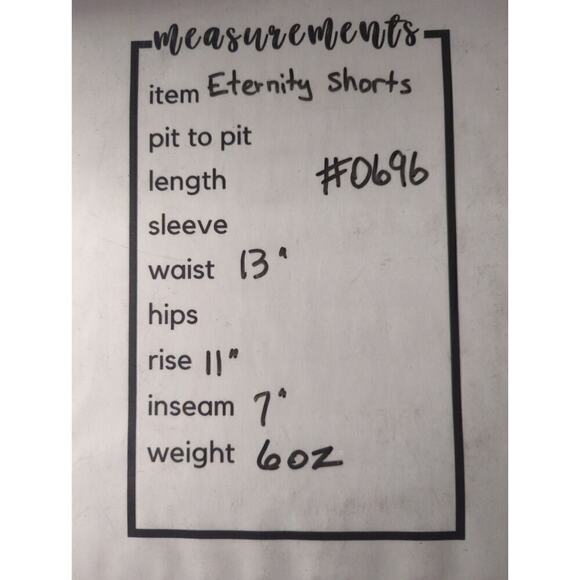 measurements
item Eternity Shorts
pit to pit
length #0696
sleeve
waist 13"
hips
rise 11"
inseam 7"
weight 6oz